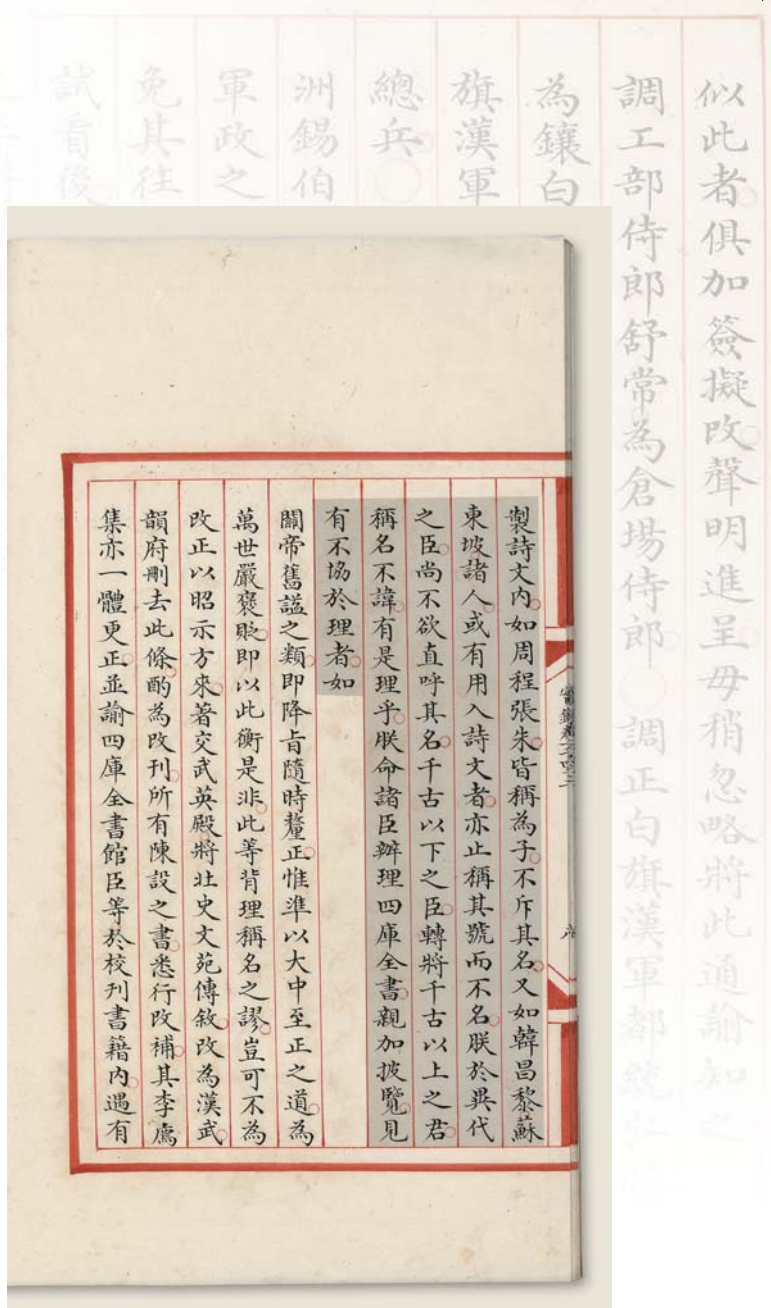 似此者俱加簽擬改聲明進呈毋稍忽略將此通諭知之
調工部侍郎舒常為倉場侍郎○調正白旗漢軍都統
為鑲白
旗漢軍
總兵○
洲錫伯
軍政之
免其往
試看後
實錄卷
製詩文內如周程張朱皆稱為子不斥其名又如韓昌黎蘇
東坡諸人或有用入詩文者亦止稱其號而不名朕於異代
之臣尚不欲直呼其名千古以下之臣轉將千古以上之君
稱名不諱有是理乎朕命諸臣辦理四庫全書親加披覽見
有不協於理者如
關帝舊謚之類即降旨隨時釐正惟準以大中至正之道為
萬世嚴褒貶即以此衡是非此等背理稱名之謬豈可不為
改正以昭示方來著交武英殿將北史文苑傳敘改為漢武
韻府刪去此條酌為改刊所有陳設之書悉行改補其李廌
集亦一體更正並諭四庫全書館臣等於校刊書籍內遇有